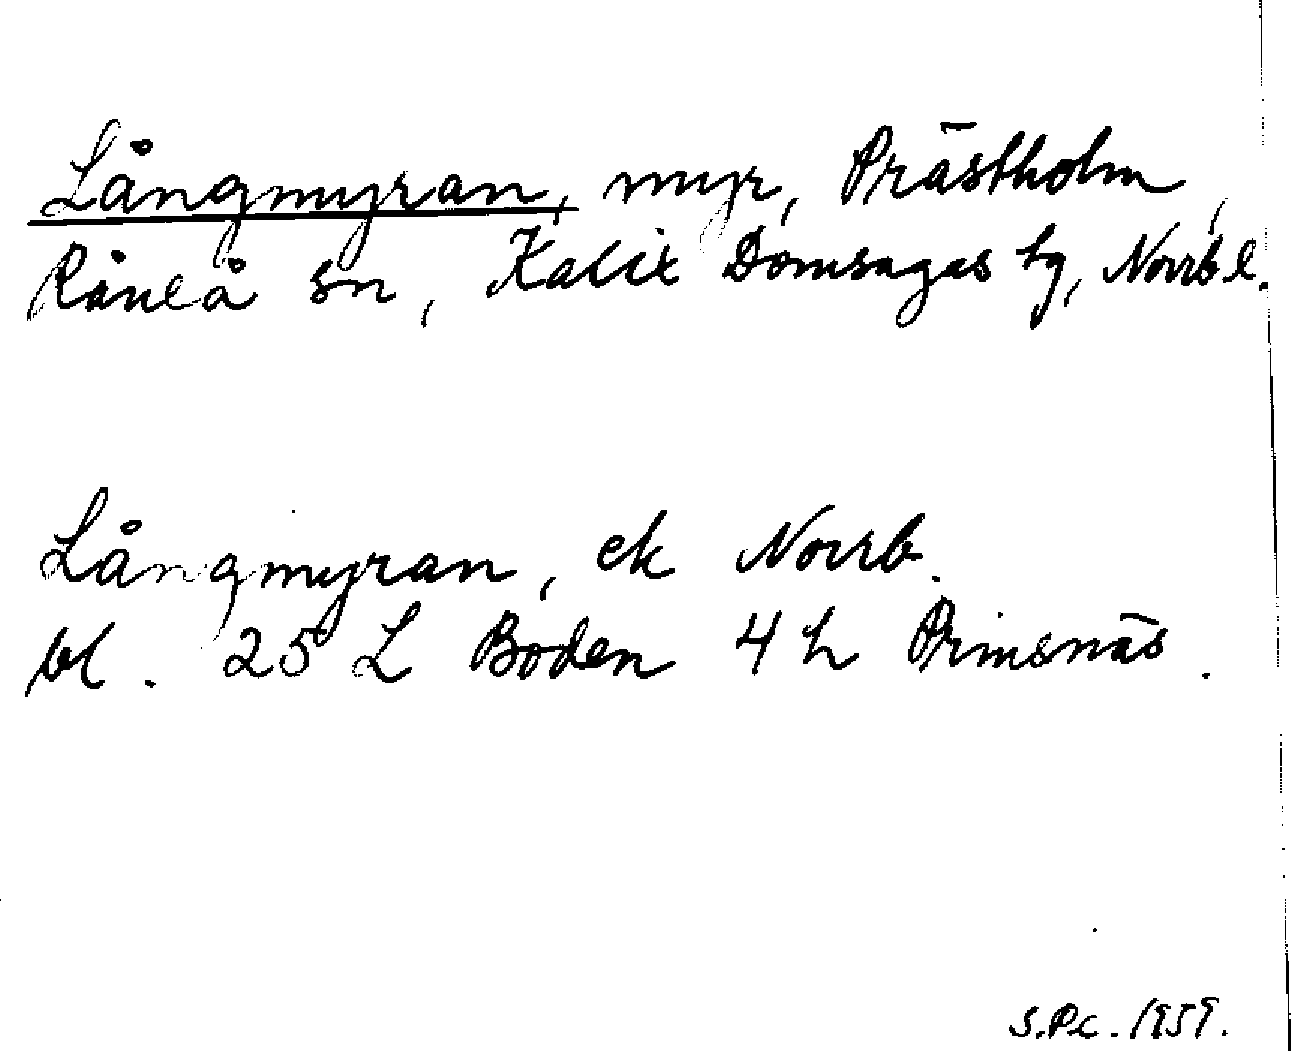 Långmyran, myr, Prästholm,
Råneå sn, Kalix Domsagas tg, Norrb l.
Långmyran, ek Norrb.
bl. 25 L Boden 4 h Prinsnäs.
S.P.c. 1959.